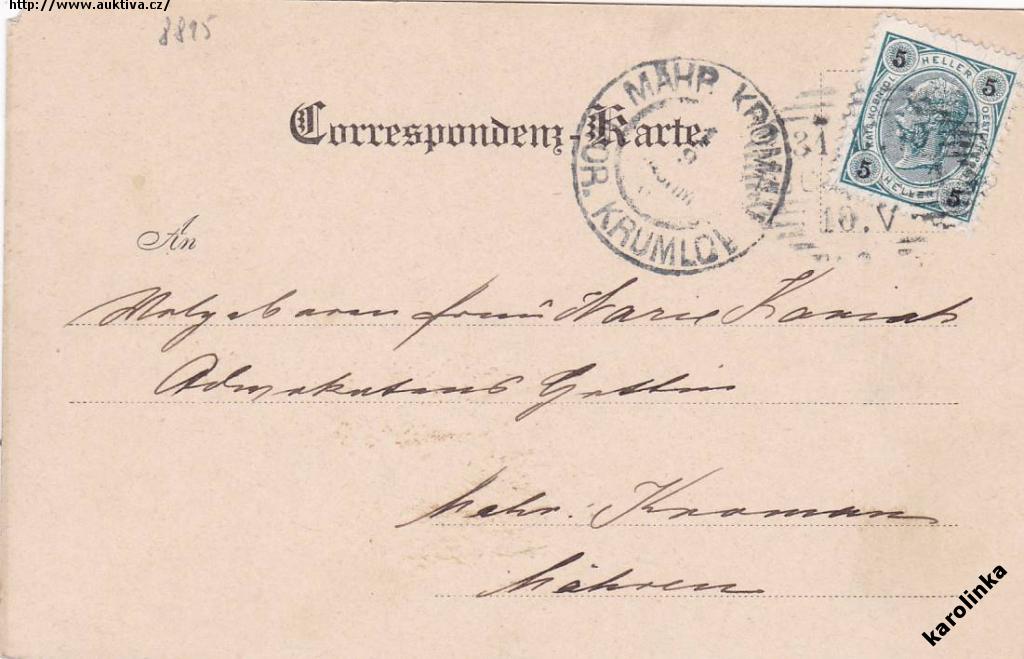 http://www.auktiva.cz/
8895
Correspondenz-Karte.
MÄHR. KROMAU
MOR. KRUMLOV
5 HELLER 5
5 HELLER 5
31
10.V
An
Wolgeboren frau Marie
Advokatens Gattin
Mähr. Kromau
Mähren
karolinka